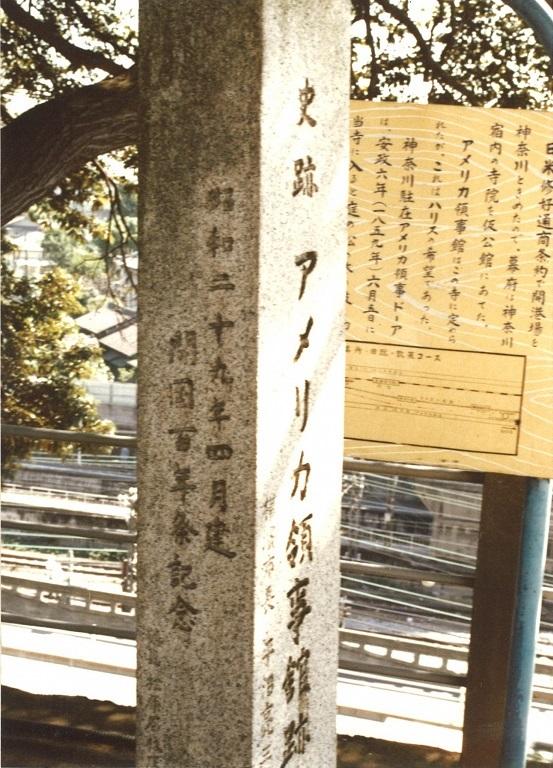 史跡 アメリカ領事館跡
横浜市長 平沼亮三
昭和二十九年四月建
開国百年祭記念
日米修好通商条約で開港場を
神奈川ときめたので、幕府は神奈川
宿内の寺院を仮公館にあてた。
アメリカ領事館はこの寺に定めら
れたが、これはハリスの希望であった。
神奈川駐在アメリカ領事ドーア
は、安政六年(一八五九年)六月五日に
当寺に入ると庭の
コース